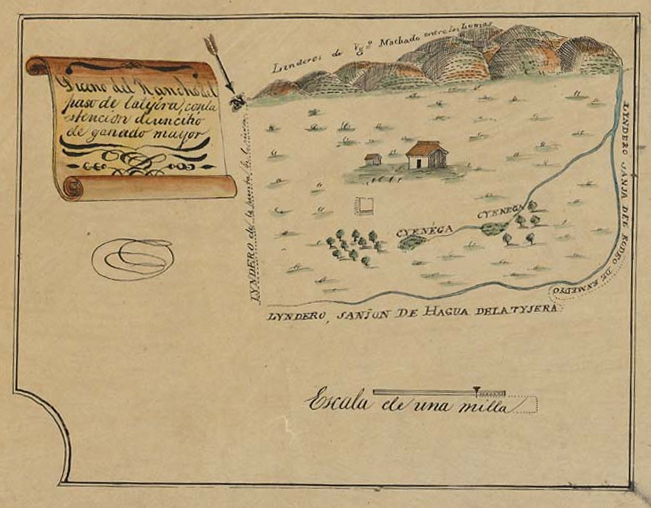 Diceno del Rancho del
paso de latijera, con la
stencion de un citio
de ganado mayor
Linderos de Ygº Machado entre las lomas
LYNDERO de la
LYNDERO SANJA DEL RODEO DE ENMEDIO
CYENEGA
CYENEGA
LYNDERO, SANJON DE HAGUA DELATYJERA
Escala de una milla